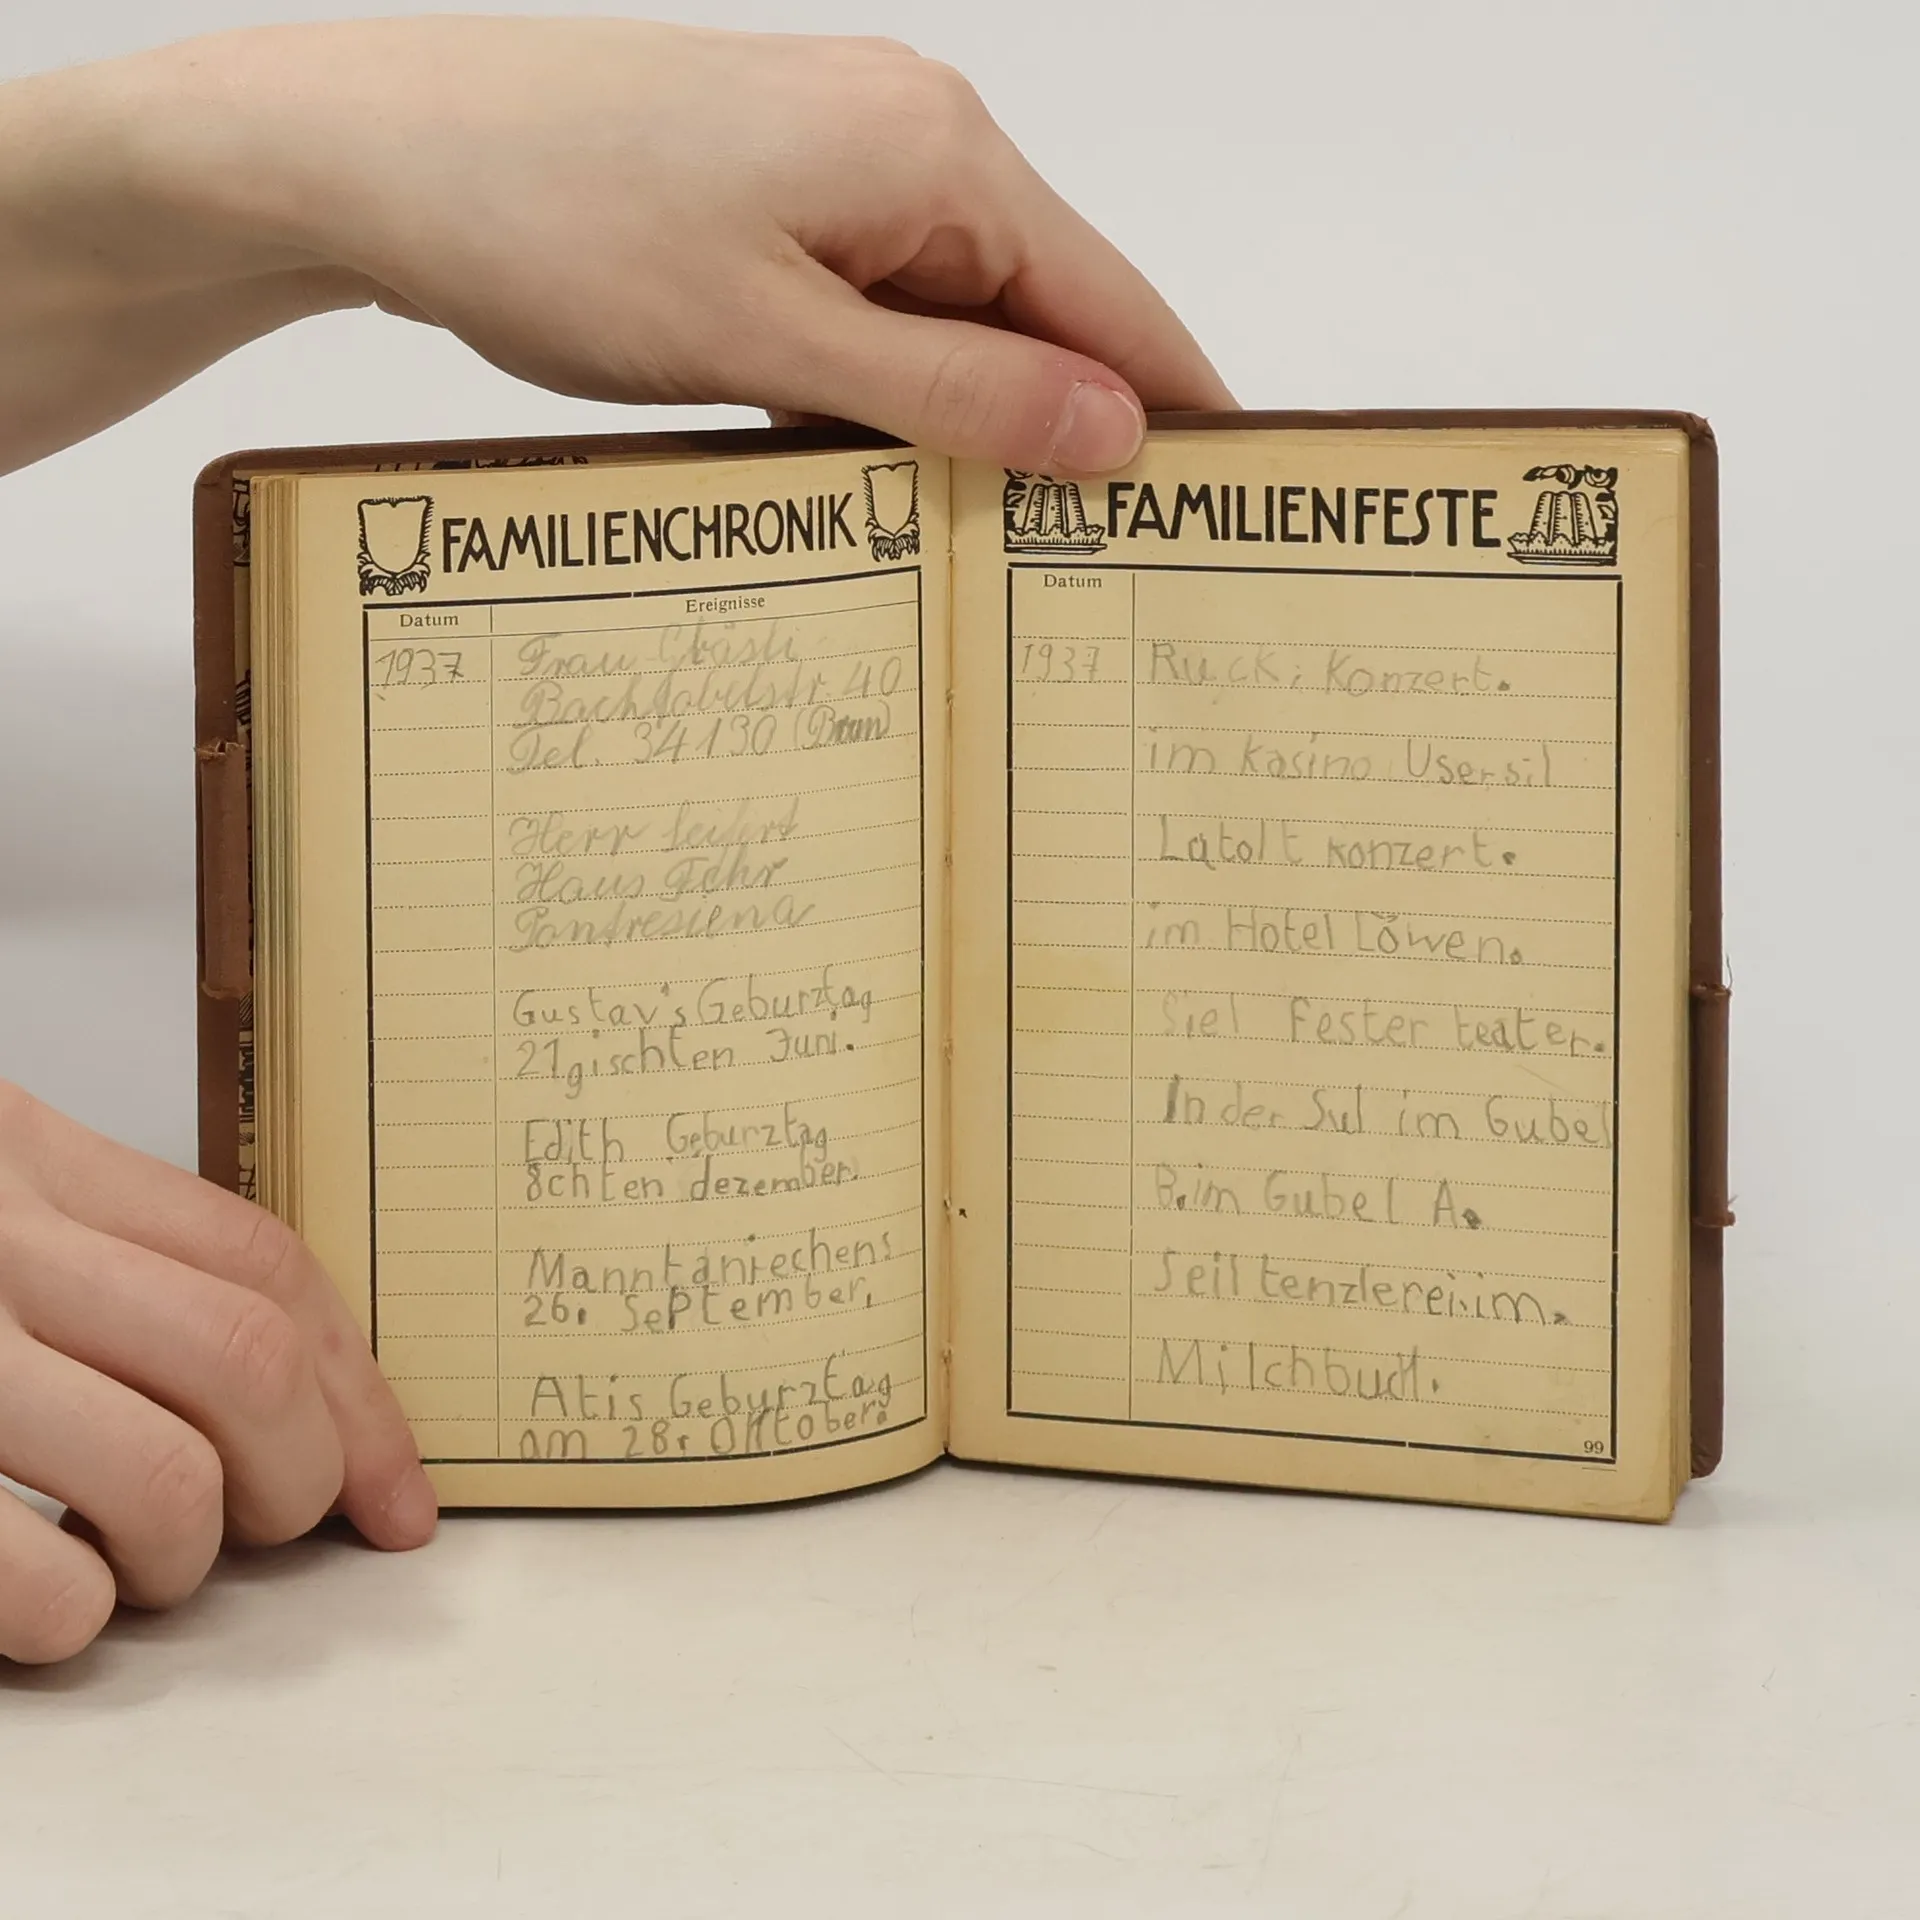 FAMILIENCHRONIK
Datum
Ereignisse
1937
Frau
Bachtobelstr. 40
Tel. 34130 (Braun)
Herr
Haus Fehr
Pontresiena
Gustav's Geburztag
21gischten Juni.
Edith Geburztag
8chten dezember.
26. September.
Atis Geburztag
am 28. Oktober.
FAMILIENFESTE
Datum
1937
Ruck: Konzert.
im Kasino Usersil
Latolt konzert.
im Hotel Löwen.
Siel Fester teater.
In der Sul im Gubel
B.im Gubel A.
Seil tenzlerei.im.
Milchbuck.
99